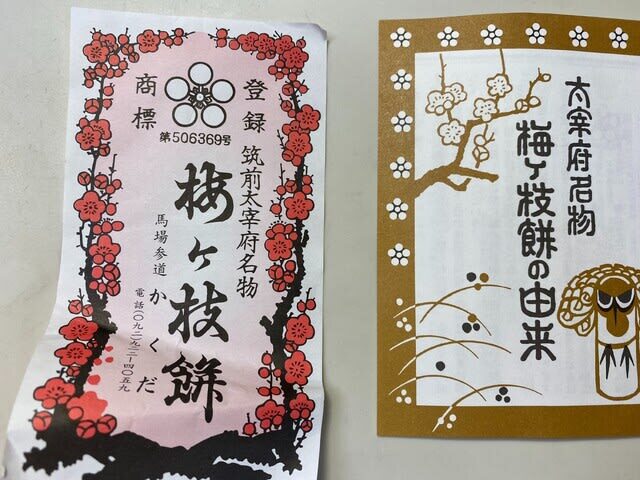 登録
商標
第506369号
筑前太宰府名物
梅ヶ枝餅
馬場参道
かくだ
電話(〇九二)九二二-四〇五九
太宰府名物
梅ヶ枝餅の由来